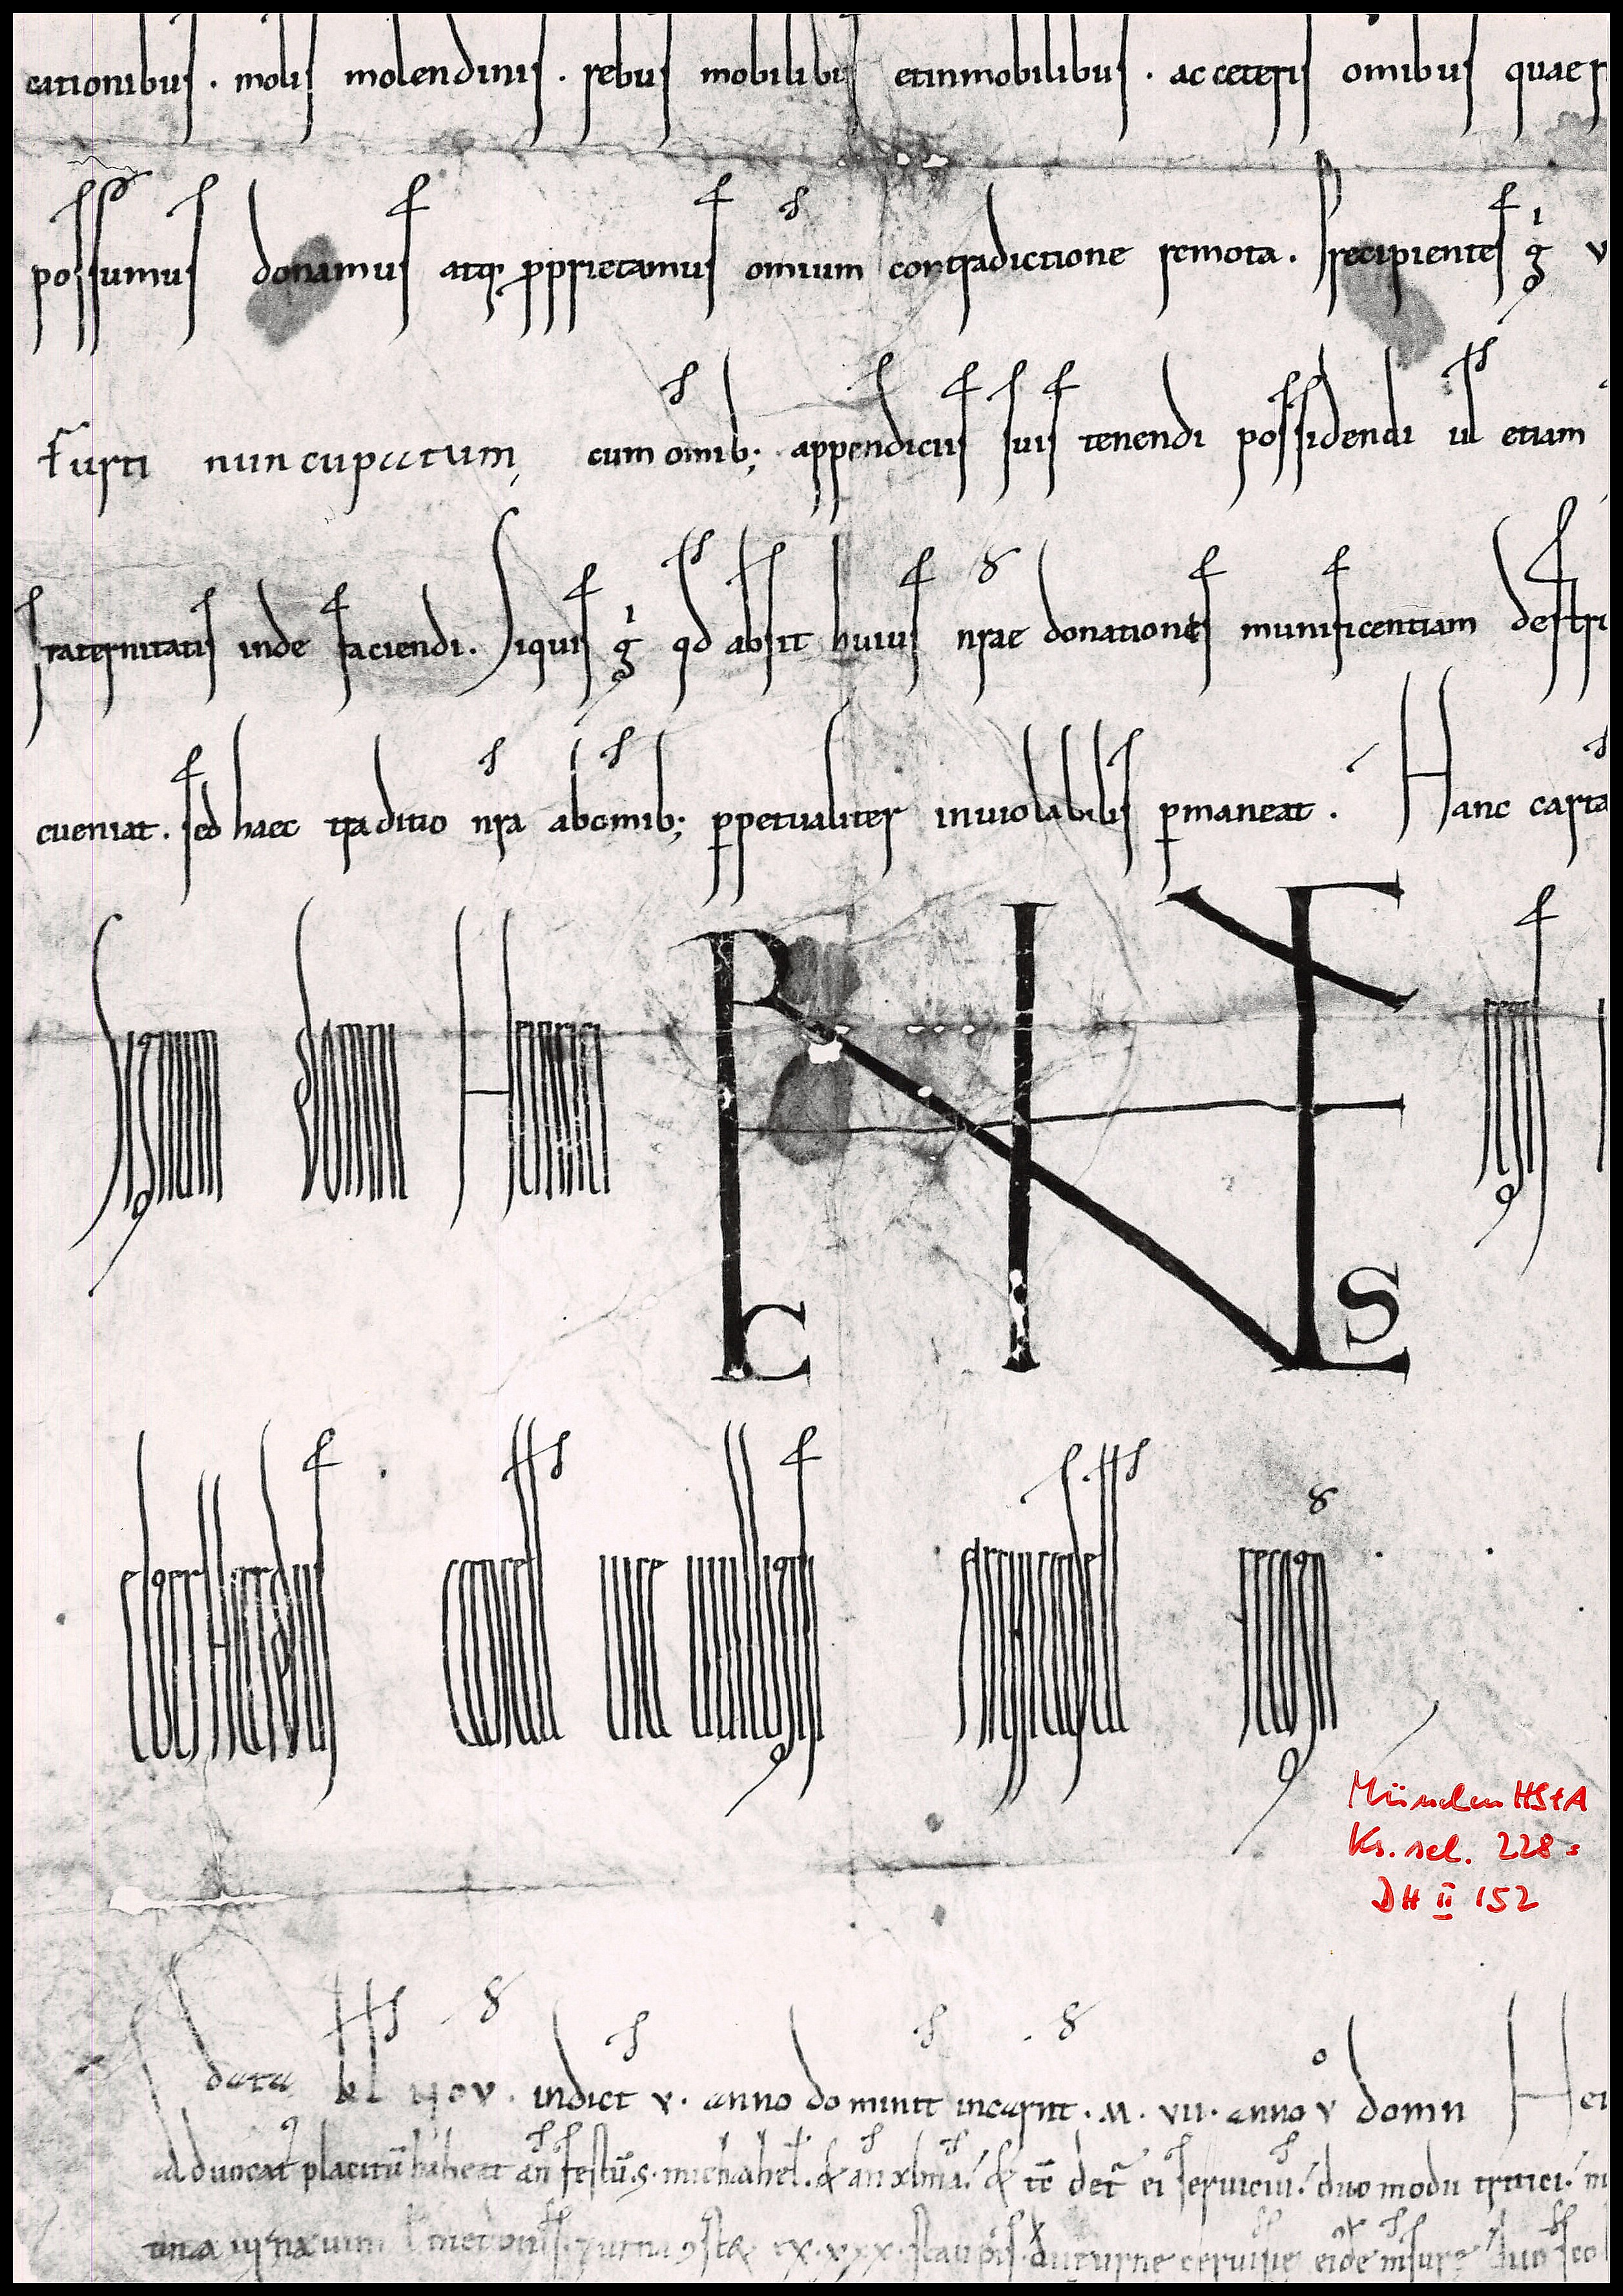 cationibus . molis molendinis . rebus mobilibus et inmobilibus . ac ceteris omibus quae r
possumus donamus atq; pprietamus omium contradictione remota . Precipientes g v
Fursti nuncupatum cum omib; appendiciis suis tenendi possidendi ul etiam
fraternitatis inde faciendi . Siquis g qd absit huius nrae donationes munificentiam destru
eueniat . sed haec traditio nra ab omib; ppetualiter inuiolabilis pmaneat . Hanc carta
Signum domni Heinrici regis
Eberhardus cancell uice uuilligisi archicapell recogn
München HStA
Ks. sel. 228 =
DH II 152
data kl nov . indict v . anno dominit incarnt . M . VII . anno v domn Hei
Aduocat placitu habeat an festu s . michahel . & an xlma . & tc det ei seruiciu . duo modii tritici .
una